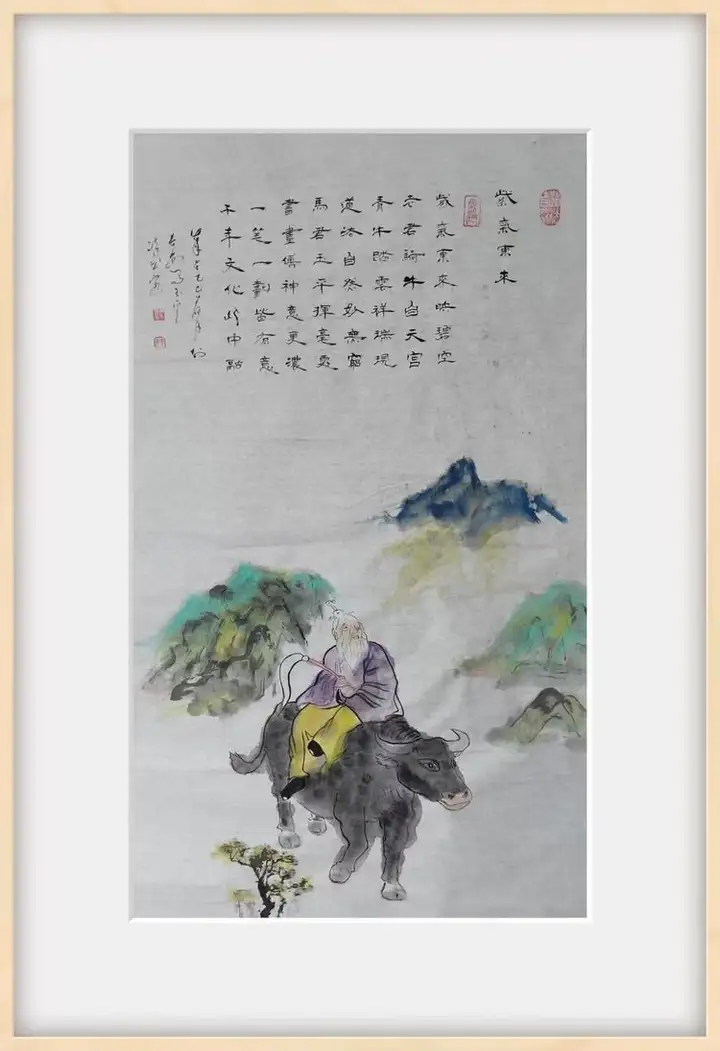 紫氣東來
紫氣東來映碧空
老君騎牛自天宮
青牛踏雲祥瑞現
道法自然妙無窮
馬君玉平揮毫處
書畫傳神意更濃
一笔一劃皆有意
千年文化此中融